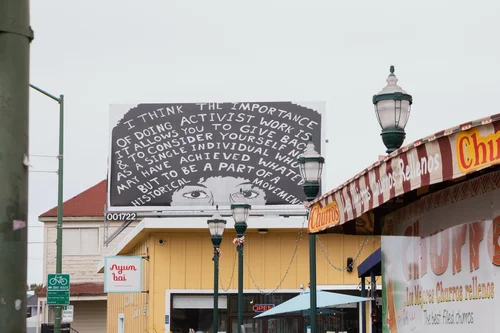 I THINK THE IMPORTANCE
OF DOING ACTIVIST WORK IS
IT ALLOWS YOU TO GIVE BACK
& TO CONSIDER YOURSELF NOT
AS A SINGLE INDIVIDUAL WHO
MAY HAVE ACHIEVED WHATE
BUT TO BE A PART OF A
HISTORICAL MOVEMEN
001722
nyum
bai
OPEN
Churros
Churros Rellenos
Churros
Los Mejores Churros rellenos
The best filled churros